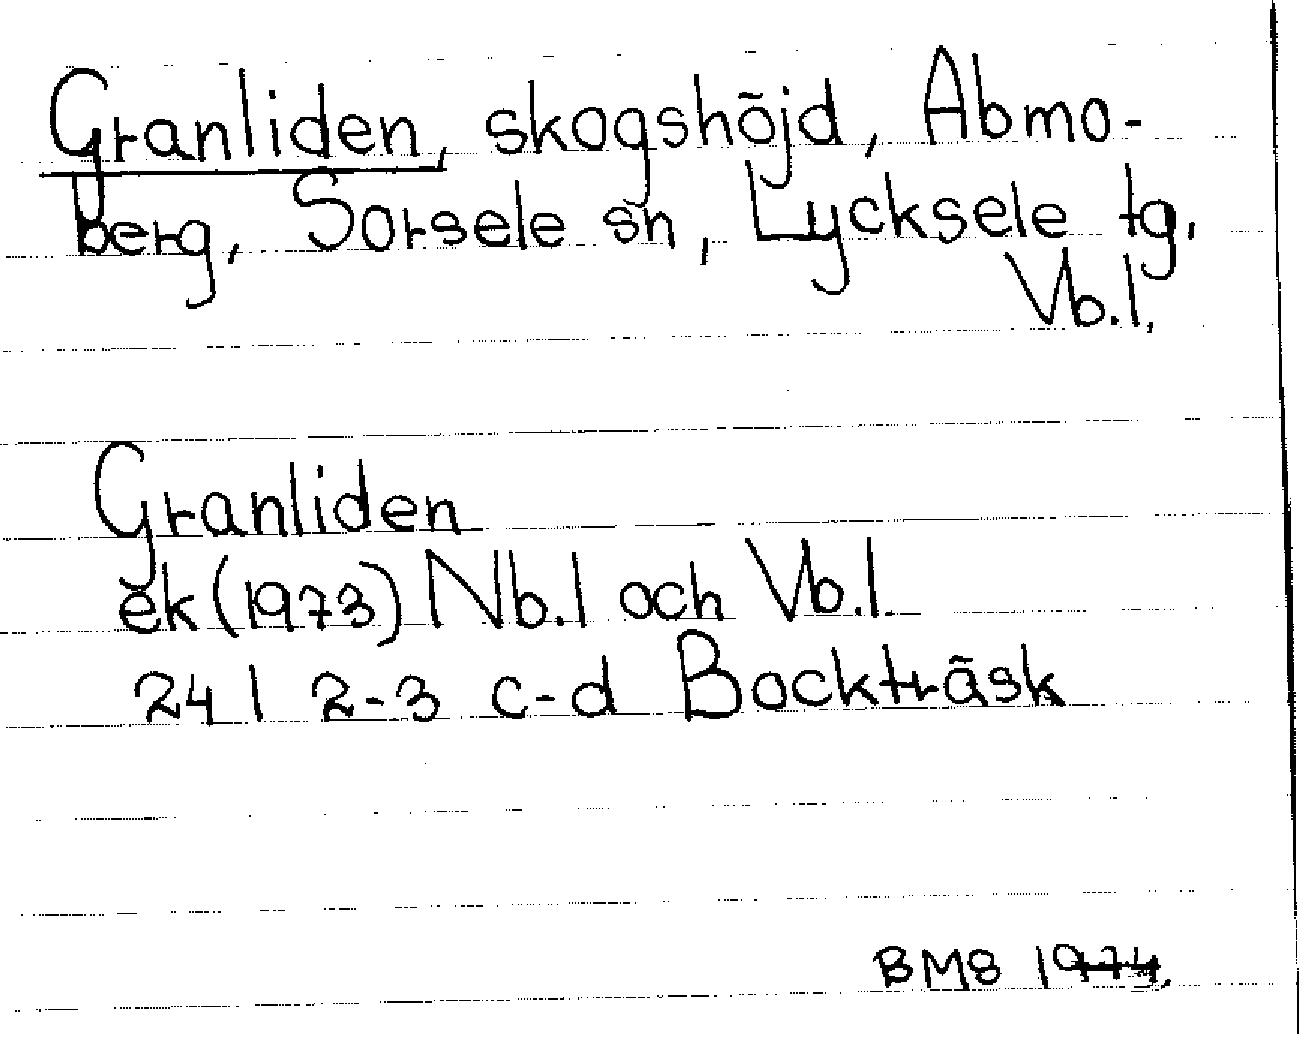 Granliden, skogshöjd, Abmo-
berg, Sorsele sn, Lycksele tg.
Vb.l.
Granliden
ek (1973) Nb.l och Vb.l.
24 I 2-3 c-d Bockträsk
BMS 1974.